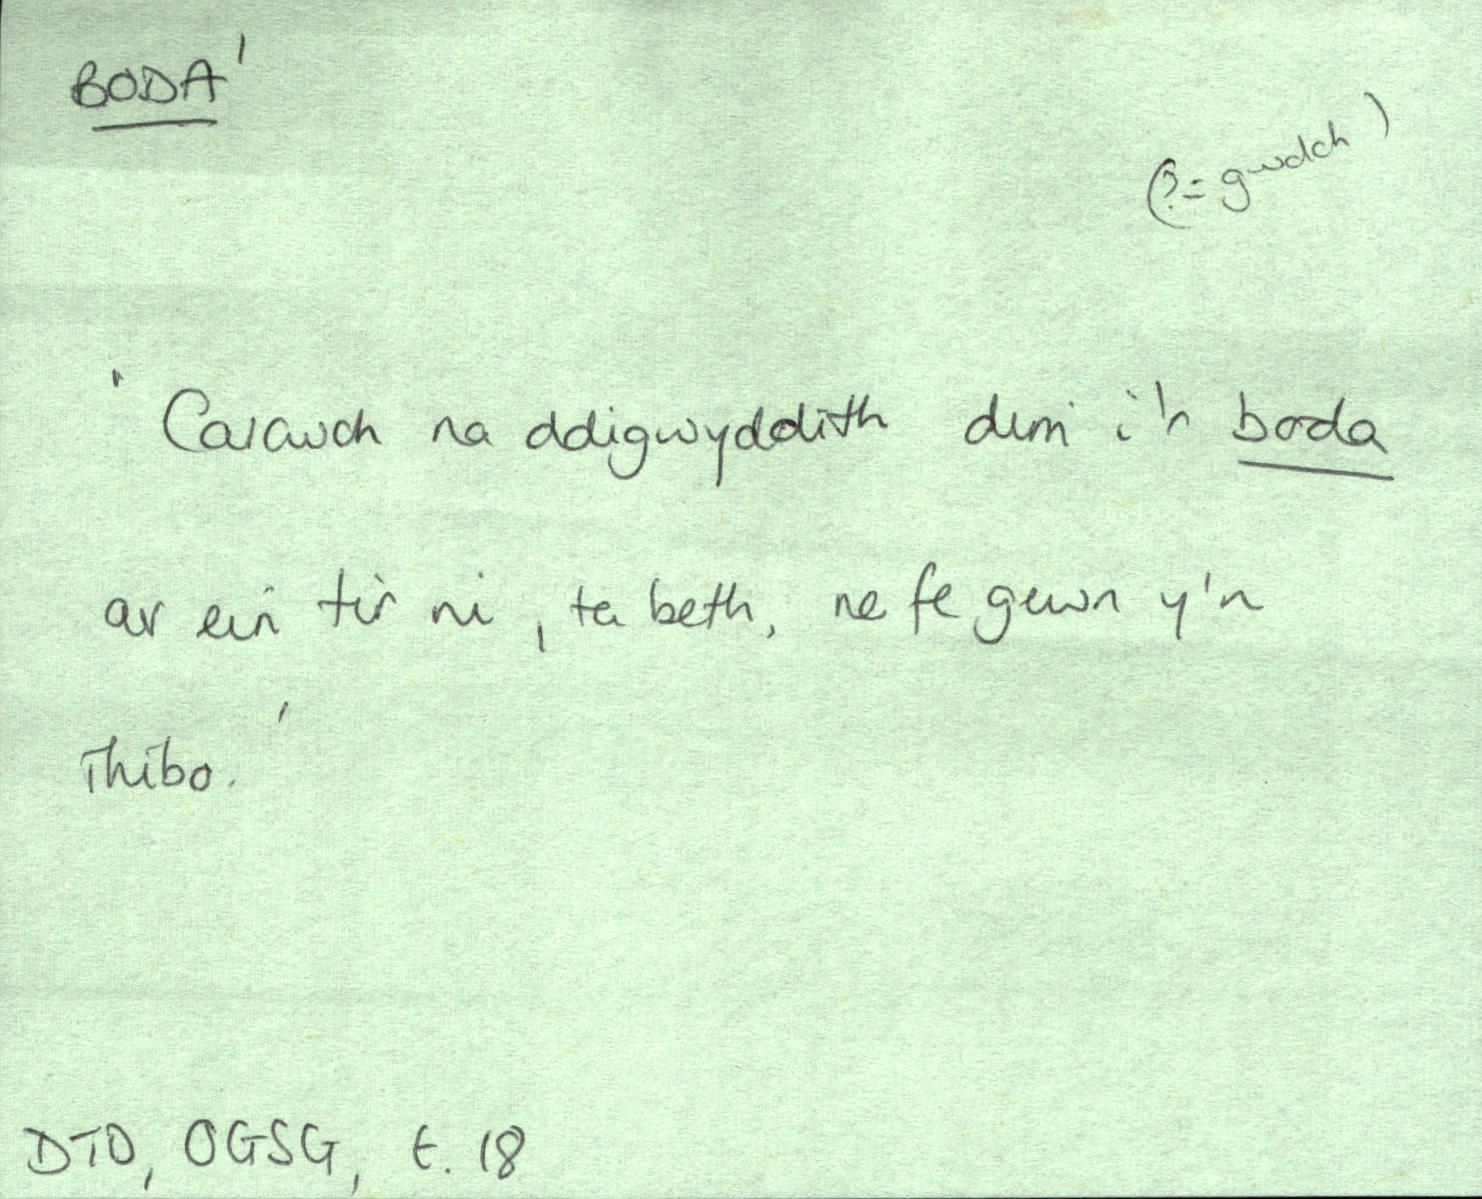 BODA'
(?= gwdch)
'Carawch na ddigwyddith dim i'r boda
ar ein tir ni, ta beth, ne fe gewn y'n
rhibo.'
DTD, OGSG, t. 18